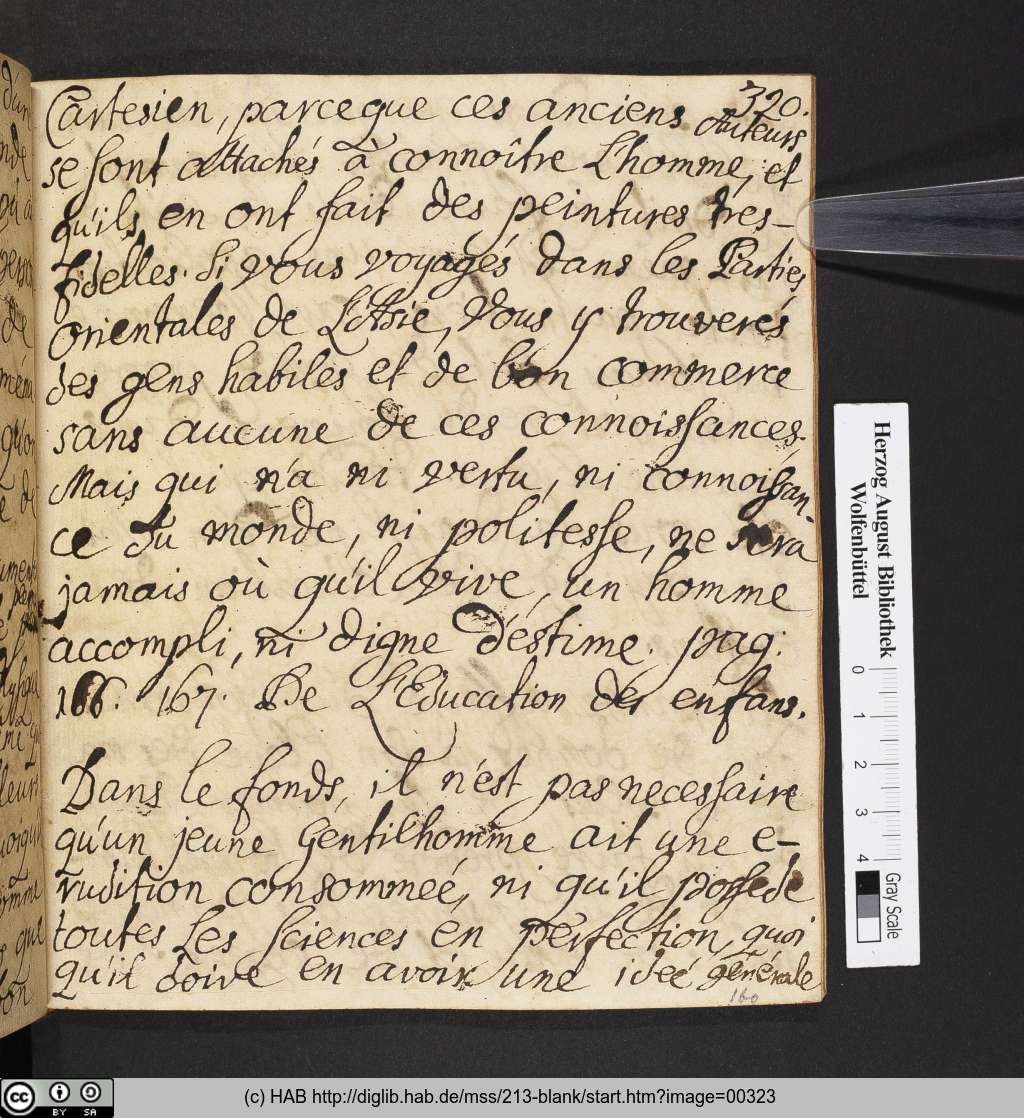 320.
Cartesien, parceque ces anciens Auteurs
se sont attachés à connoître L'homme, et
qu'ils en ont fait des peintures tres-
fidelles. Si vous voyagés dans les Parties
orientales de L'Asie, Vous y trouverés
des gens habiles et de bon commerce
sans aucune de ces connoissances.
Mais qui n'a ni vertu, ni connoissan-
ce du monde, ni politesse, ne sera
jamais où qu'il vive, un homme
accompli, ni digne d'estime. pag:
166. 167. De L'Education des enfans.
Dans le fonds, il n'est pas necessaire
qu'un jeune Gentilhomme ait une e-
rudition consommeé, ni qu'il possede
toutes Les Sciences en perfection, quoi
qu'il doive en avoir une ideé générale
160
Herzog August Bibliothek
Wolfenbüttel
0 1 2 3 4
Gray Scale
cc BY SA
(c) HAB http://diglib.hab.de/mss/213-blank/start.htm?image=00323